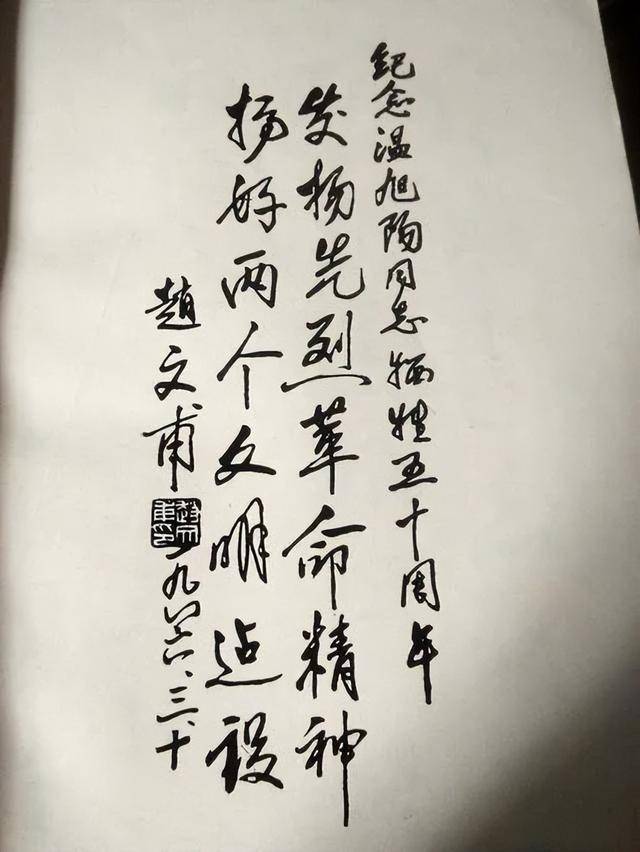 纪念温旭阳同志牺牲五十周年
发扬先烈革命精神
搞好两个文明建设
趙文甫
一九八六、三、十